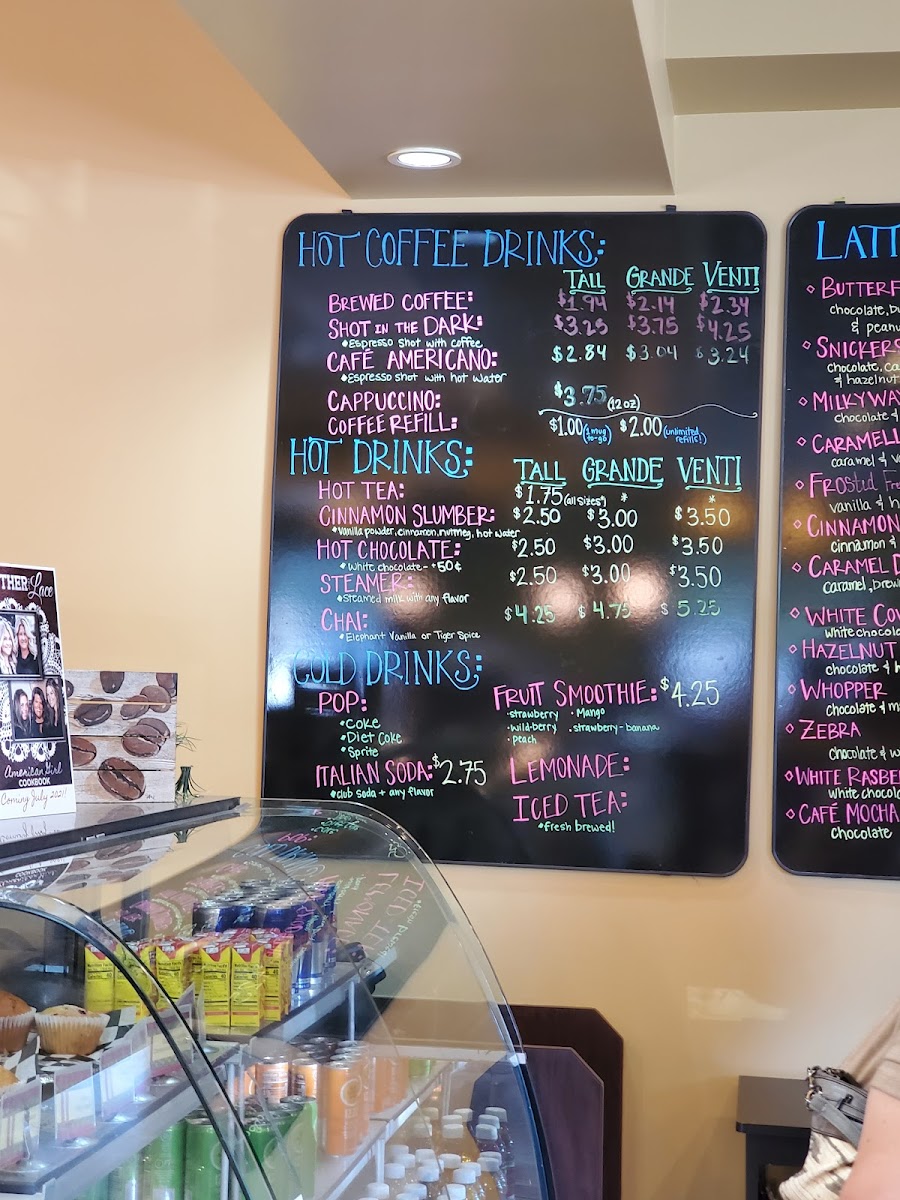 HOT COFFEE DRINKS:
TALL GRANDE VENTI
BREWED COFFEE: $1.94 $2.14 $2.34
SHOT IN THE DARK: $3.25 $3.75 $4.25
Espresso Shot with coffee
CAFÉ AMERICANO: $2.84 $3.04 $3.24
Espresso shot with hot water
CAPPUCCINO: $3.75 (12oz)
COFFEE REFILL: $1.00 (1 mug to-go) $2.00 (unlimited refills!)
HOT DRINKS:
TALL GRANDE VENTI
HOT TEA: $1.75 (all sizes*) * *
CINNAMON SLUMBER: $2.50 $3.00 $3.50
vanilla powder, cinnamon, nutmeg, hot water
HOT CHOCOLATE: $2.50 $3.00 $3.50
White chocolate - +50¢
STEAMER: $2.50 $3.00 $3.50
Steamed milk with any flavor
CHAI: $4.25 $4.75 $5.25
Elephant Vanilla or Tiger Spice
COLD DRINKS:
POP:
Coke
Diet Coke
Sprite
ITALIAN SODA: $2.75
club soda + any flavor
FRUIT SMOOTHIE: $4.25
strawberry · Mango
wild-berry · strawberry-banana
peach
LEMONADE:
ICED TEA:
fresh brewed!
LATT
BUTTERF
chocolate, bu
& peanu
SNICKERS
chocolate, ca
& hazelnut
MILKYWAY
chocolate &
CARAMELL
caramel & va
FROSTED Fre
vanilla & h
CINNAMON
cinnamon &
CARAMEL D
caramel, brow
WHITE COW
white chocola
HAZELNUT
chocolate & h
WHOPPER
chocolate & ma
ZEBRA
chocolate & w
WHITE RASBE
white chocola
CAFÉ MOCHA
chocolate
THER & Lace
American Girl
COOKBOOK
Coming July 2021!